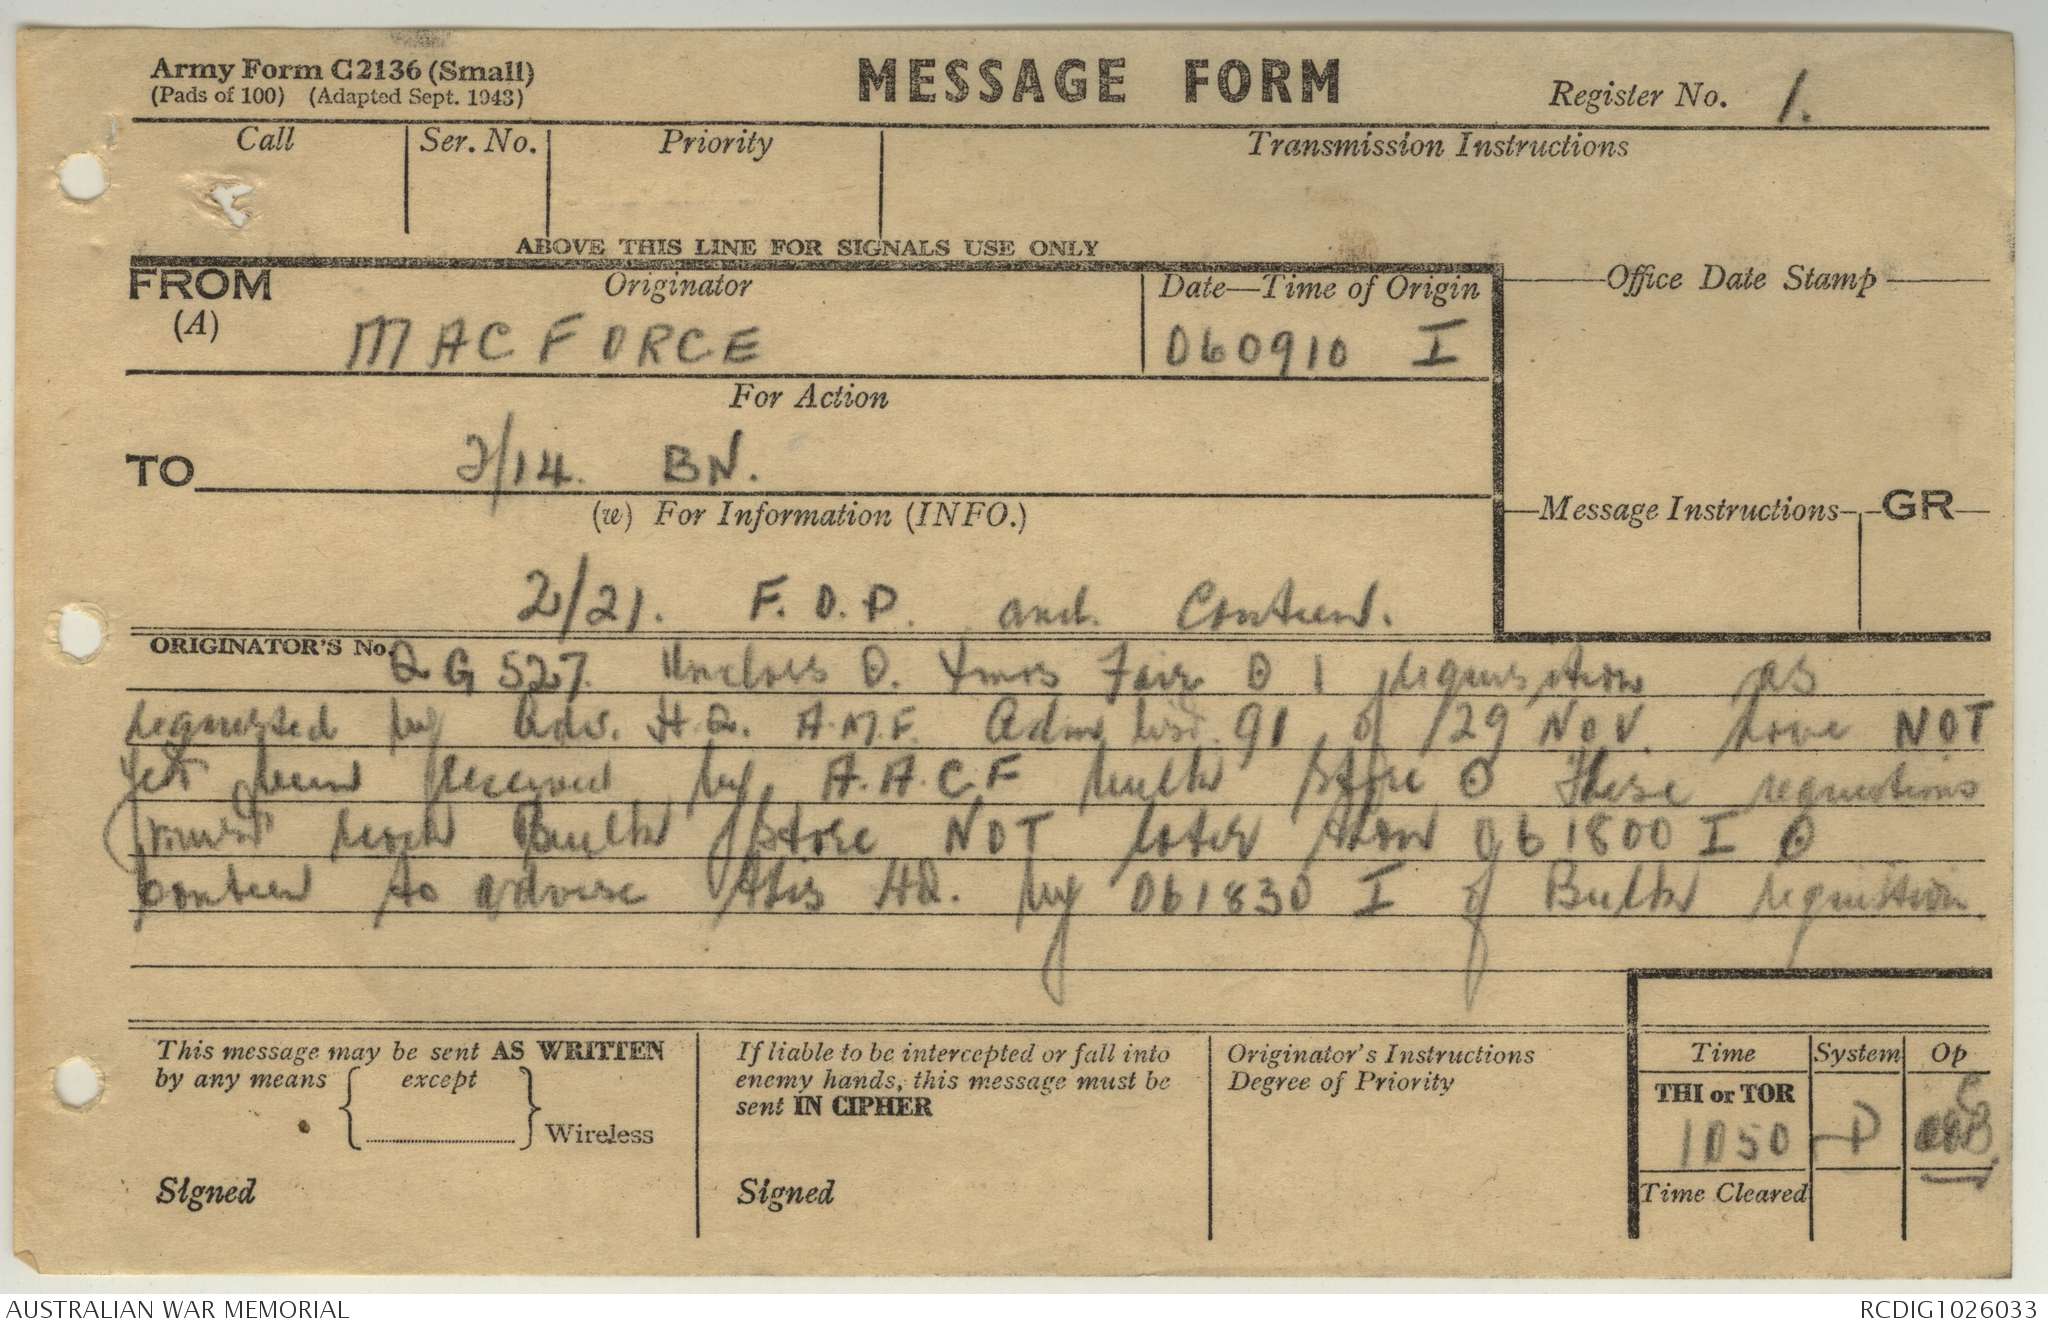 Army Form C2136 (Small)
(Pads of 100) (Adapted Sept. 1943)
MESSAGE FORM
Register No. 1.
Call
Ser. No.
Priority
Transmission Instructions
ABOVE THIS LINE FOR SIGNALS USE ONLY
FROM
(A)
Originator
MACFORCE
Date—Time of Origin
060910 I
Office Date Stamp
For Action
TO
2/14. BN.
(w) For Information (INFO.)
Message Instructions
GR
2/21. F.O.P. and Canteen.
ORIGINATOR'S No. QG527. Unclass O. Xmas Fare O 1 requisition as
requested by Adv. H.Q. A.M.F. Adm 91 of 29 NOV. have NOT
yet been received by A.A.C.F bulk store O These requistions
must reach Bulk store NOT later than 061800 I O
Canteen to advise this HQ. by 061830 I of Bulk requistion
This message may be sent AS WRITTEN
by any means except
Wireless
Signed
If liable to be intercepted or fall into
enemy hands, this message must be
sent IN CIPHER
Signed
Originator's Instructions
Degree of Priority
Time
System
Op
THI or TOR
1050
P
Time Cleared
AUSTRALIAN WAR MEMORIAL
RCDIG1026033